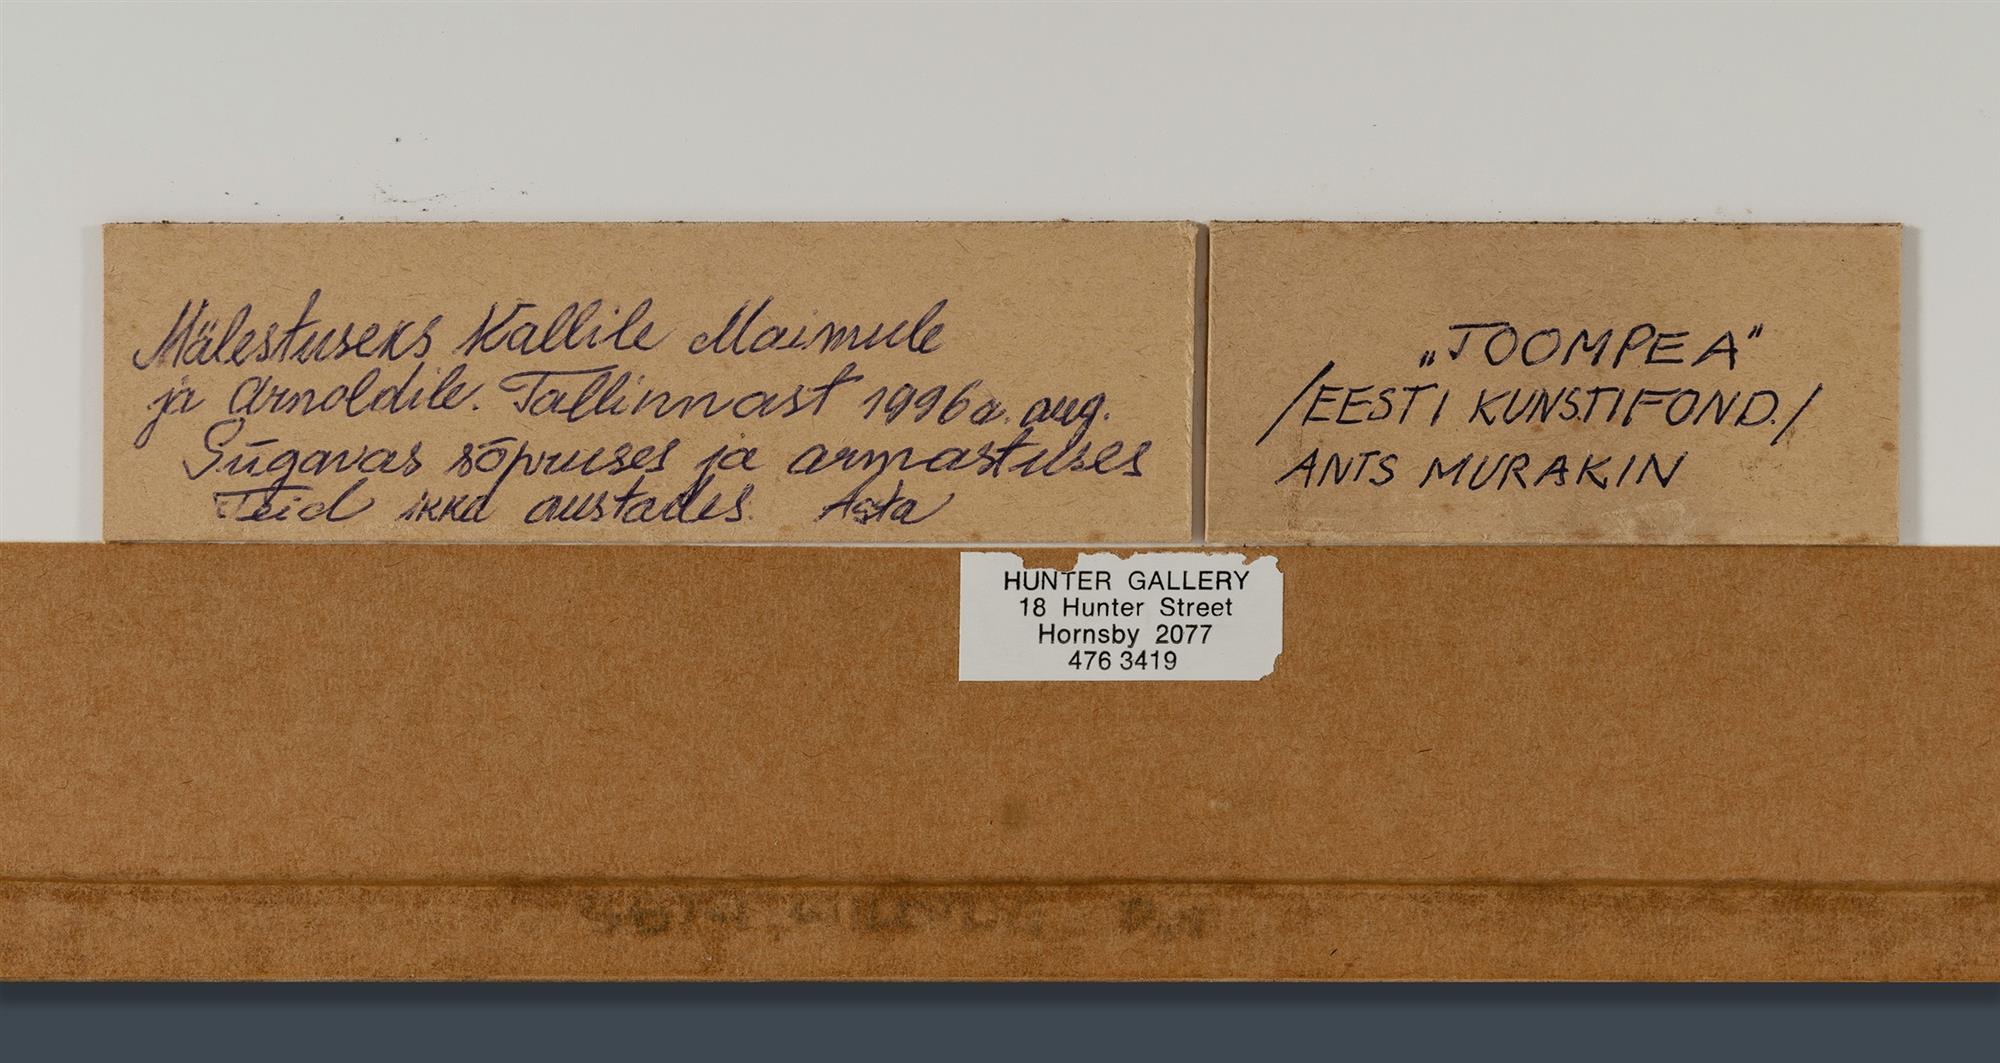 Mälestuseks Kallile Maimule
ja Arnoldile. Tallinnast 1996a. aug.
Sügavas sõpruses ja armastuses
Teid ikka austades. Asta
„TOOMPEA“
/EESTI KUNSTIFOND./
ANTS MURAKIN
HUNTER GALLERY
18 Hunter Street
Hornsby 2077
476 3419